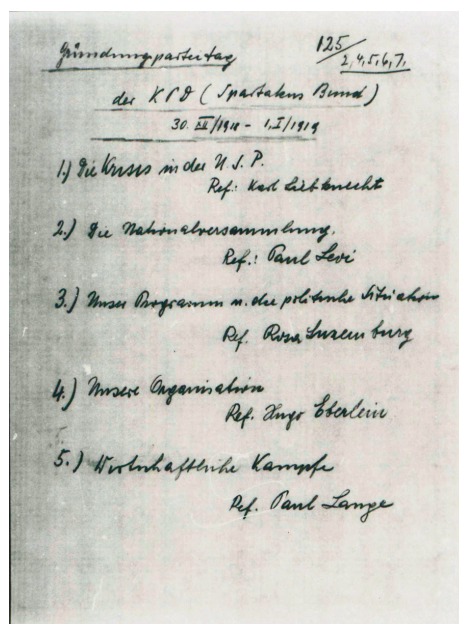 Gründungsparteitag
125/
2,4,5,6,7.
der KPD (Spartakus Bund)
30. XII/1918 - 1.I/1919
1.) Die Krisis in der U.S.P.
Ref.: Karl Liebknecht
2.) Die Nationalversammlung.
Ref.: Paul Levi
3.) Unser Programm u. die politische Situation
Ref. Rosa Luxemburg
4.) Unsere Organisation
Ref. Hugo Eberlein
5.) Wirtschaftliche Kämpfe
Ref. Paul Lange